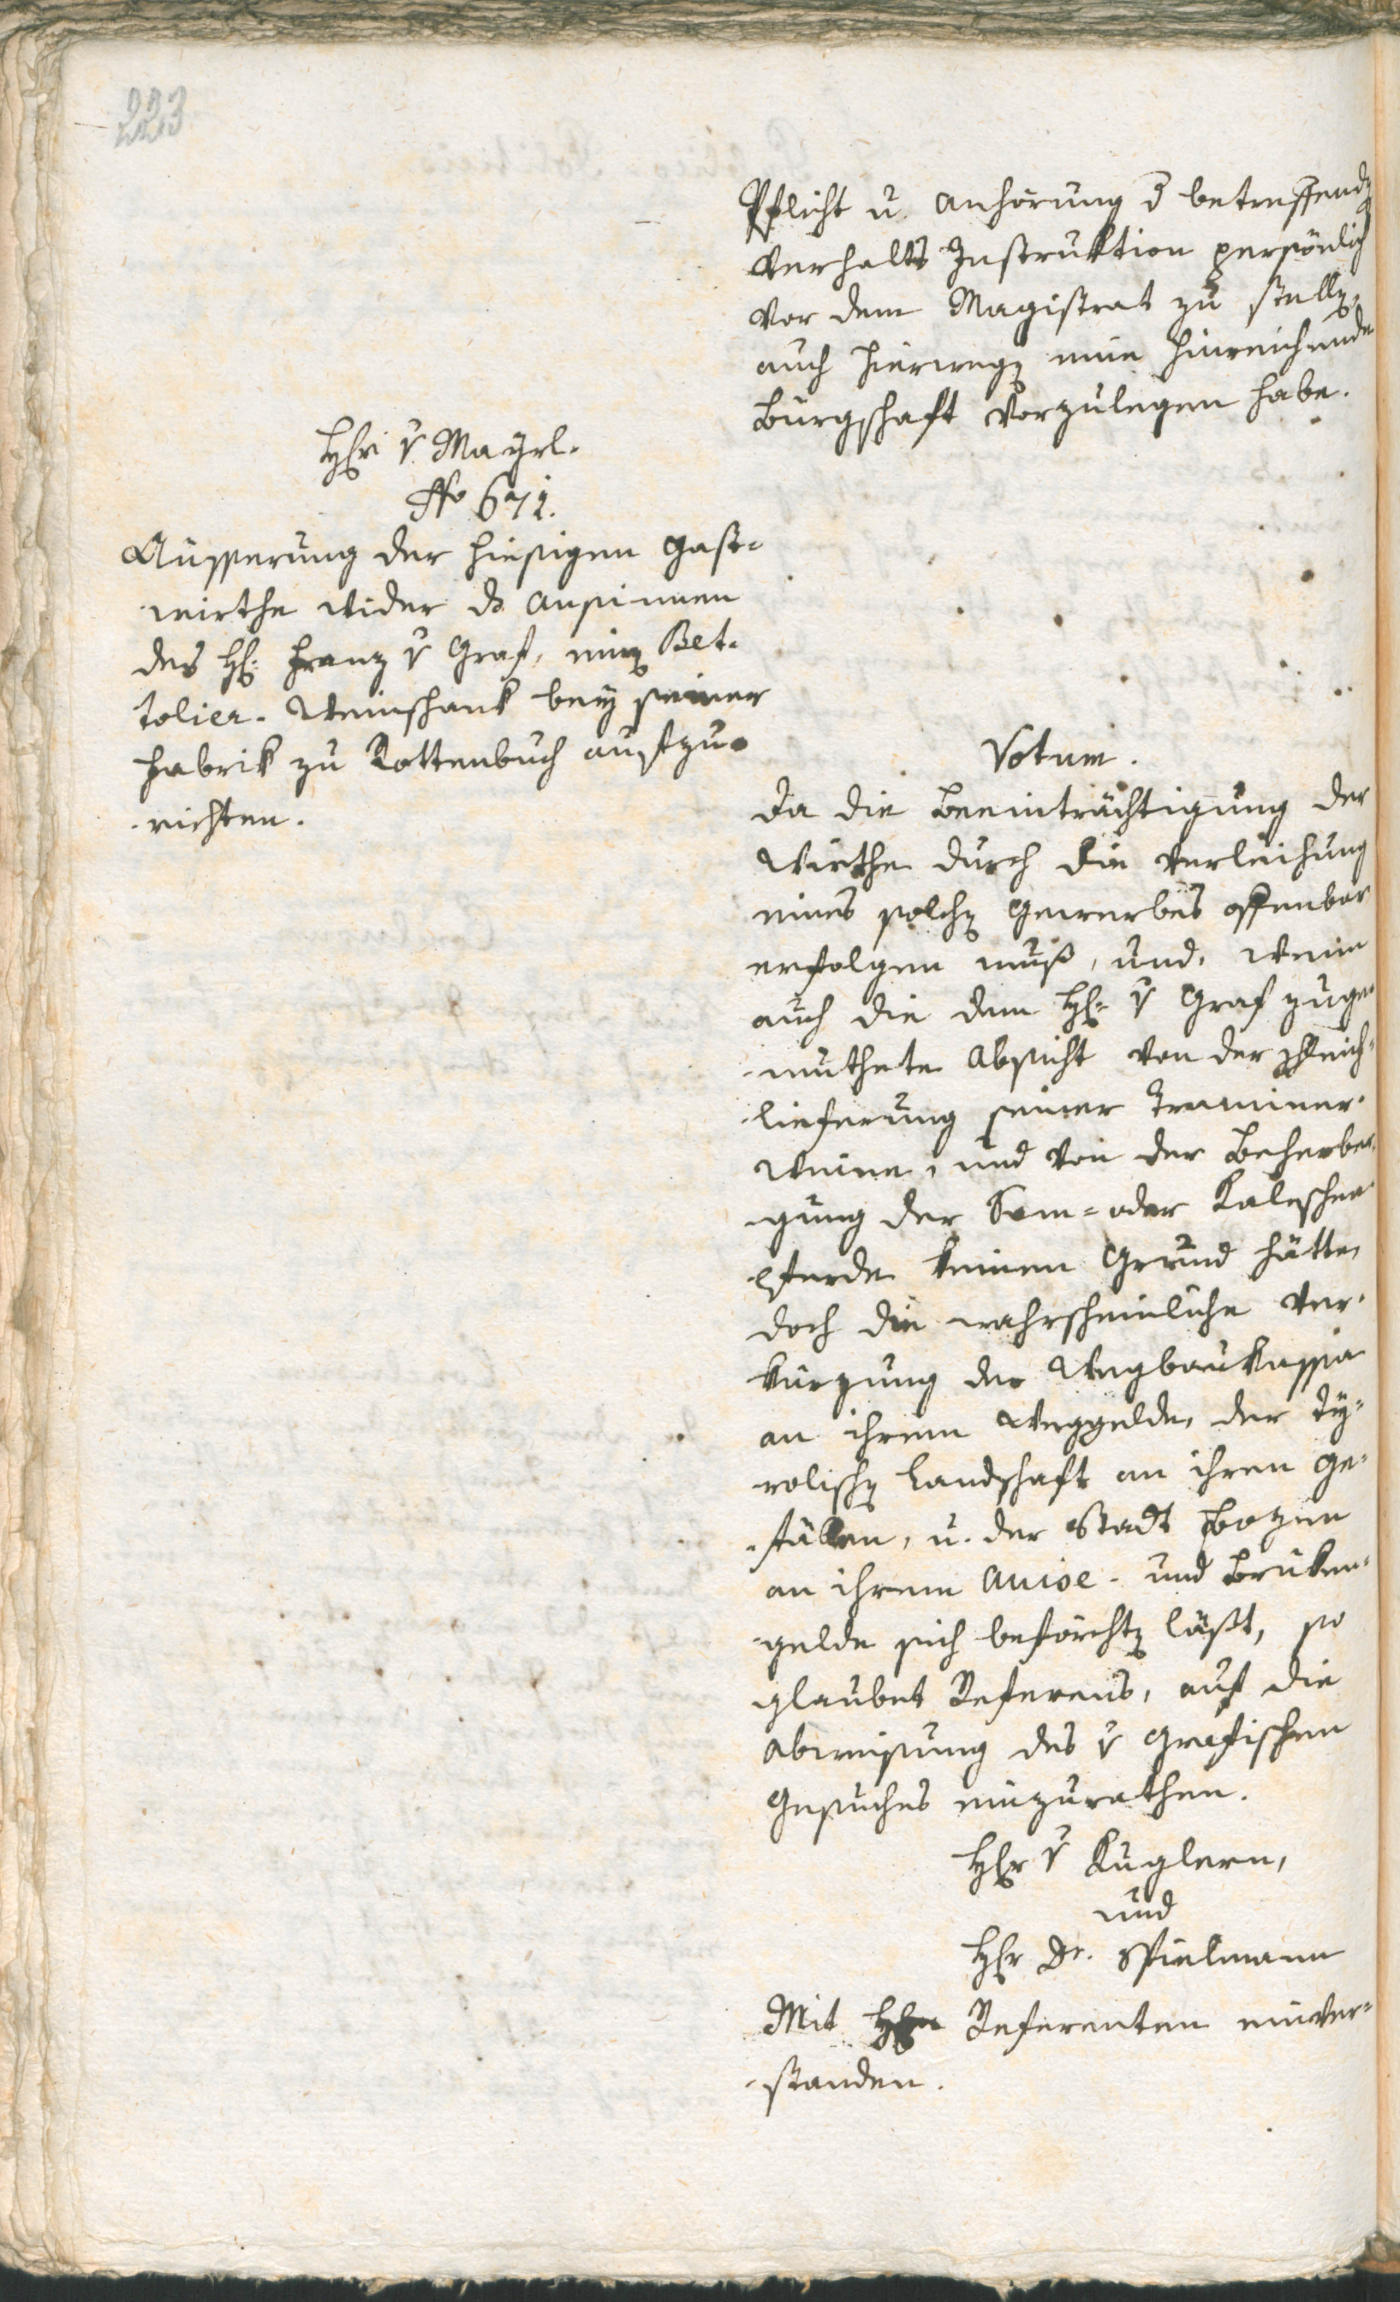 223
Pflicht u. Anhörung d betreffend
Verhalts Instruktion persönlich
vor dem Magistrat zu stelln,
auch hierwegn eine hinreichende
Bürgschaft vorzulegen habe.
Hr v Mayrl.
No 671.
Äusserung der hiesigen Gast-
wirthe wider ds Ansinnen
des H: Franz v Graf, einn Bet-
tolier-Weinschank bey seiner
Fabrik zu Rottenbuch aufzu-
richten.
Votum.
Da die Beeinträchtigung der
Wirthe durch die Verleihung
eines solchn Gewerbes offenbar
erfolgen muß, und, wenn
auch die dem H: v Graf zuge-
muthete Absicht von der
lieferung seiner Traminer-
Weine, und von der Beherber-
gung der Sam- oder Kaleschen-
Pferde keinen Grund hätte,
doch die wahrscheinliche Ver-
kürzung der Wegbaukassa
an ihrem Weggelde, der Ty-
rolischn Landschaft an ihren Ge-
fällen, u. der Stadt Bozen
an ihrem Avise- und Bruken-
gelde sich beförchtn läßt, so
glaubet Referens, auf die
Abweisung des v Grafischen
Gesuches einzurathen.
Hr v Kuglern,
und
Hr Dr. Spielmann
Mit Hrn Referenten einver-
standen.